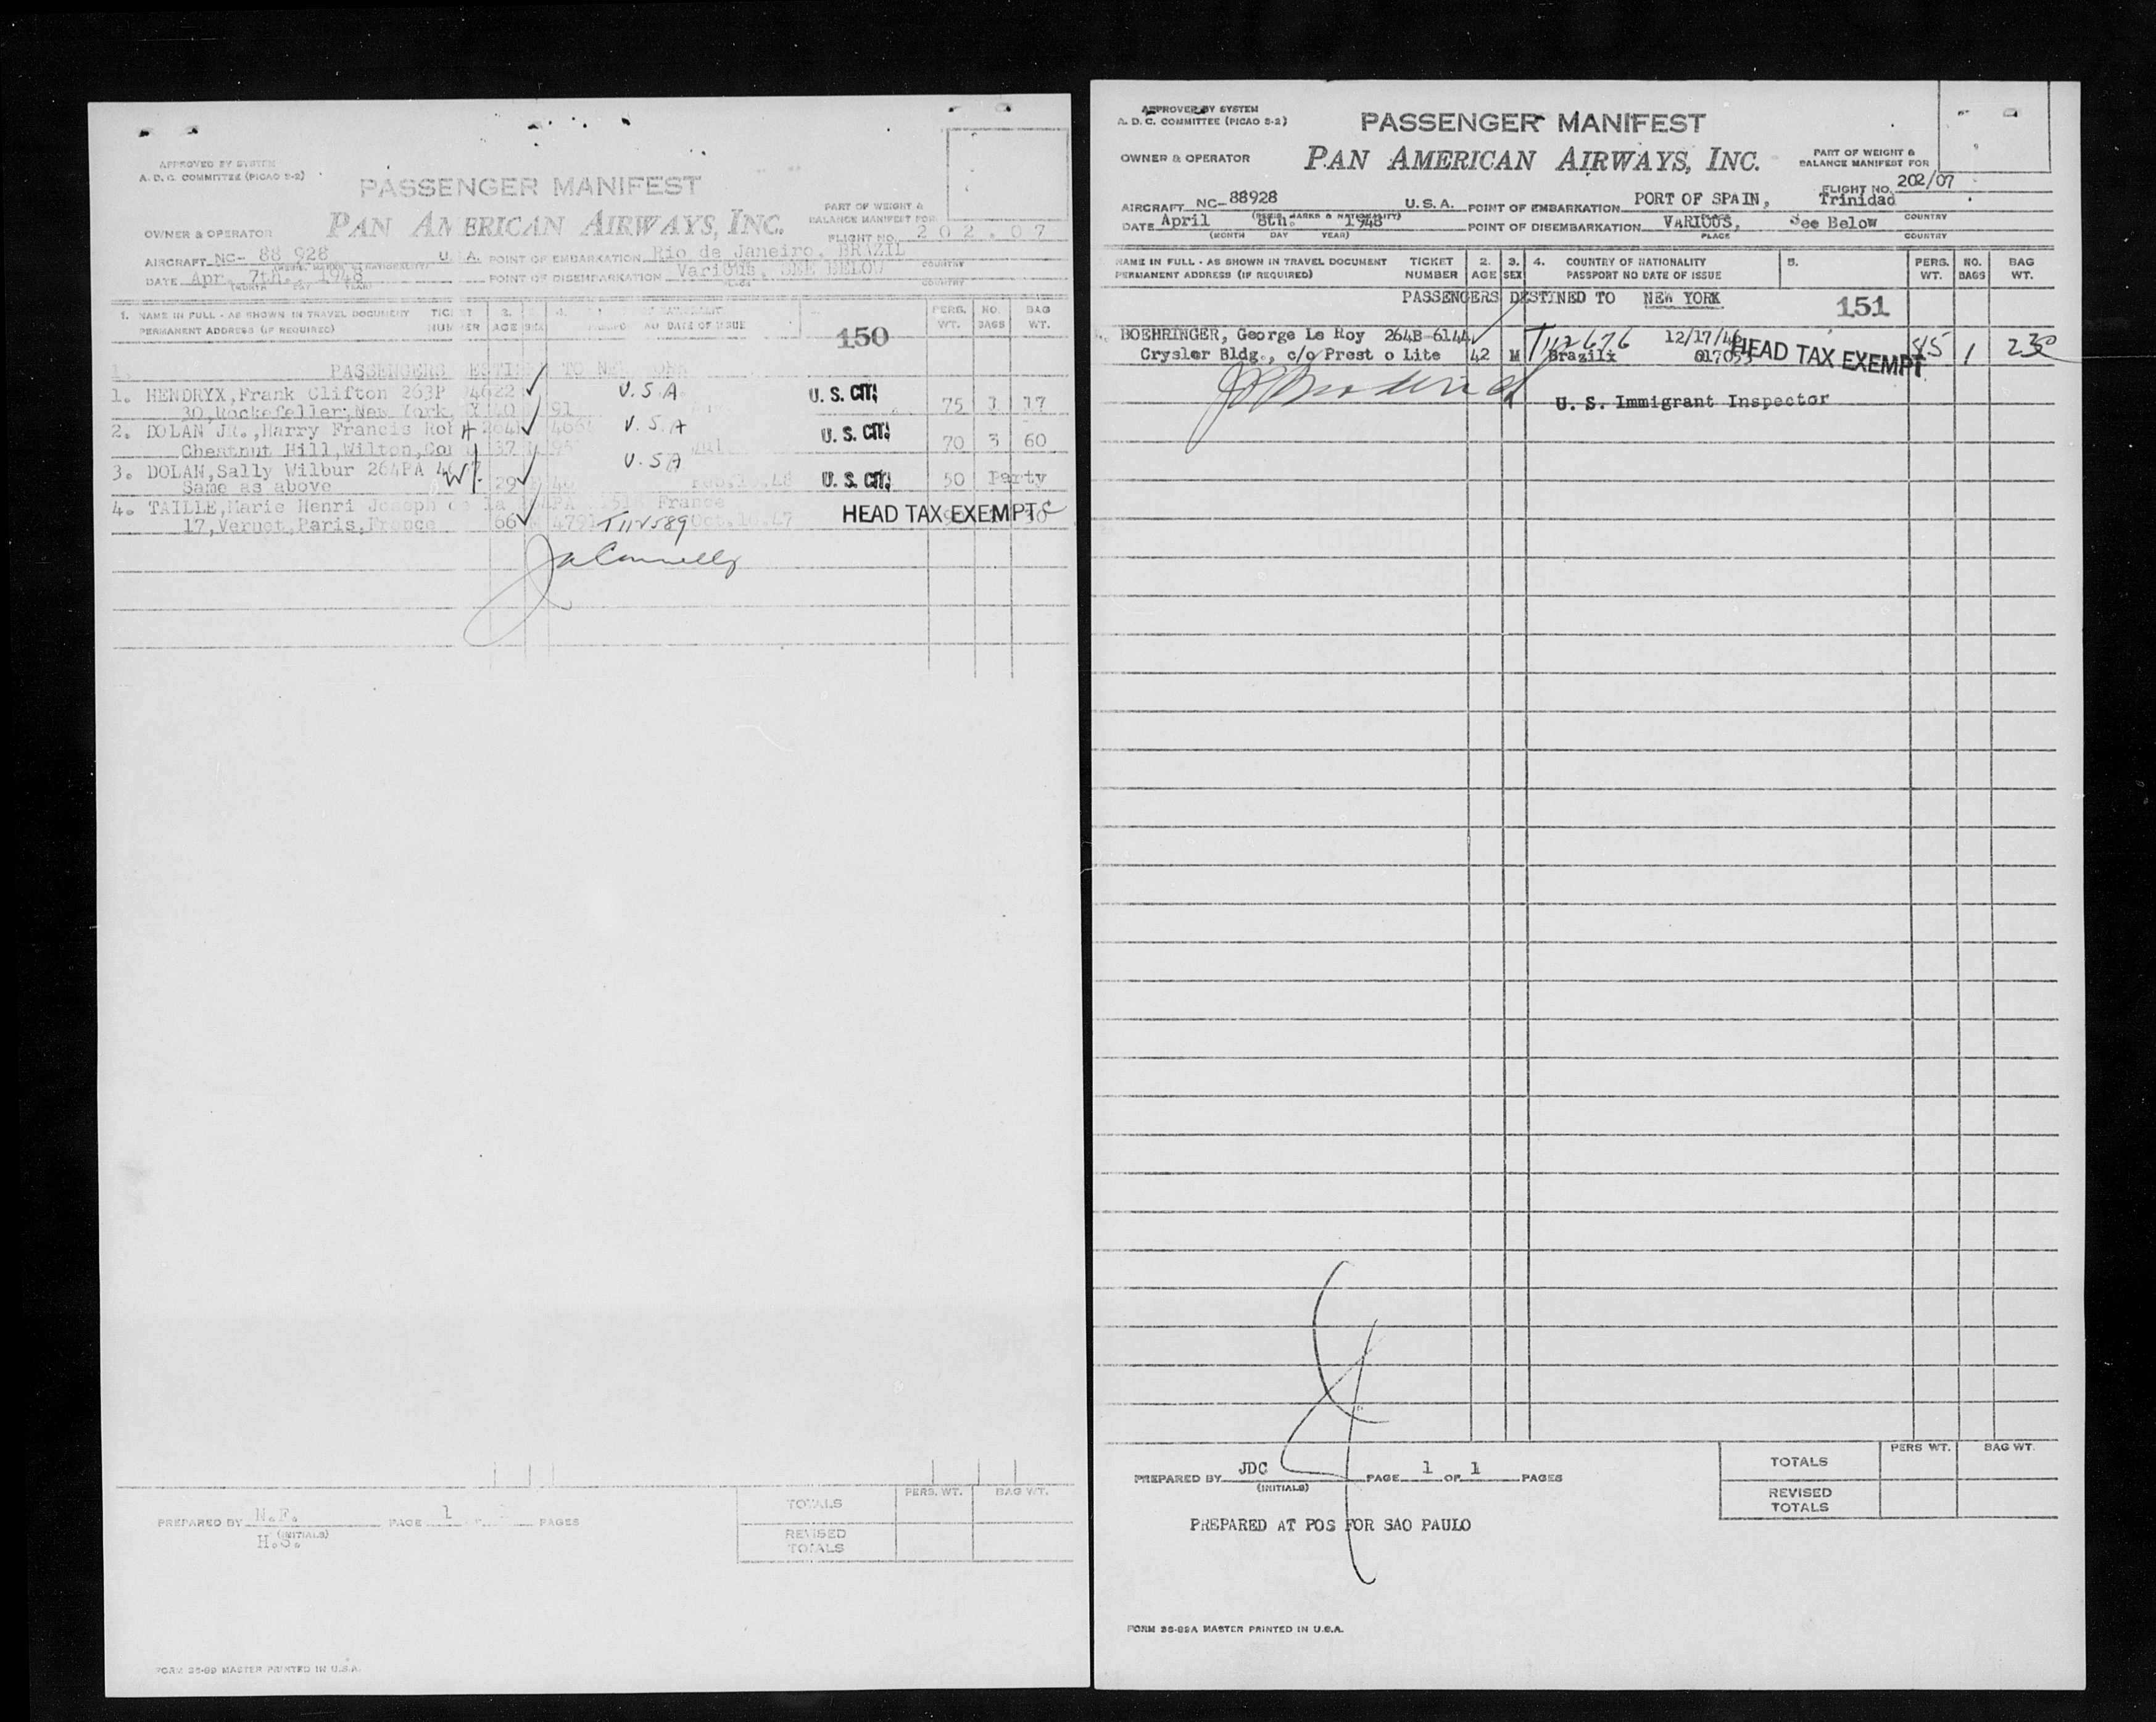 APPROVED BY SYSTEM
A. D. C. COMMITTEE (PICAO S-2)
PASSENGER MANIFEST
OWNER & OPERATOR
PAN AMERICAN AIRWAYS, INC.
PART OF WEIGHT &
BALANCE MANIFEST FOR
FLIGHT NO. 202.07
AIRCRAFT NC- 88 928 U. A. POINT OF EMBARKATION Rio de Janeiro, BRAZIL
COUNTRY
DATE Apr. 7th., 1948 POINT OF DISEMBARKATION Various, SEE BELOW
(MONTH DAY YEAR) PLACE COUNTRY
1. NAME IN FULL - AS SHOWN IN TRAVEL DOCUMENT
PERMANENT ADDRESS (IF REQUIRED)
2. AGE
DATE OF ISSUE
150
PERS. WT.
NO. BAGS
BAG WT.
PASSENGERS TO
1. HENDRYX, Frank Clifton 263P 4622 U.S.A U. S. CIT.
30, Rockefeller, New York, 75 17
2. DOLAN JR., Harry Francis U.S.A U. S. CIT.
Chestnut Hill, Wilton, 37 70 3 60
3. DOLAN, Sally Wilbur 264PA U.S.A
Same as above 29 U. S. CIT. 50 Party
4. TAILLE, Marie Henri Joseph de la France
17, Vernet, Paris, France 66 T112589 Oct. 10.47 HEAD TAX EXEMPT
TOTALS
PERS. WT. BAG WT.
PREPARED BY N.F. PAGE 1 PAGES
(INITIALS)
H.S.
REVISED
TOTALS
FORM 36-89 MASTER PRINTED IN U.S.A.
APPROVED BY SYSTEM
A. D. C. COMMITTEE (PICAO S-2)
PASSENGER MANIFEST
OWNER & OPERATOR
PAN AMERICAN AIRWAYS, INC.
PART OF WEIGHT &
BALANCE MANIFEST FOR
FLIGHT NO. 202/07
AIRCRAFT NC-88928 U. S. A. POINT OF EMBARKATION PORT OF SPAIN, Trinidad
DATE April 8th. 1948 POINT OF DISEMBARKATION VARIOUS, See Below
COUNTRY
(MONTH DAY YEAR) PLACE COUNTRY
NAME IN FULL - AS SHOWN IN TRAVEL DOCUMENT
PERMANENT ADDRESS (IF REQUIRED)
TICKET NUMBER
2. AGE
3. SEX
4. COUNTRY OF NATIONALITY
PASSPORT NO DATE OF ISSUE
5.
PERS. WT.
NO. BAGS
BAG WT.
PASSENGERS DESTINED TO NEW YORK 151
BOEHRINGER, George Le Roy 264B-6144 T112676 12/17/46
Crysler Bldg., c/o Prest o Lite 42 M Brazili 017055 HEAD TAX EXEMPT 1
U. S. Immigrant Inspector
PERS WT. BAG WT.
TOTALS
PREPARED BY JDC PAGE 1 OF 1 PAGES
(INITIALS)
REVISED
TOTALS
PREPARED AT POS FOR SAO PAULO
FORM 36-89A MASTER PRINTED IN U.S.A.